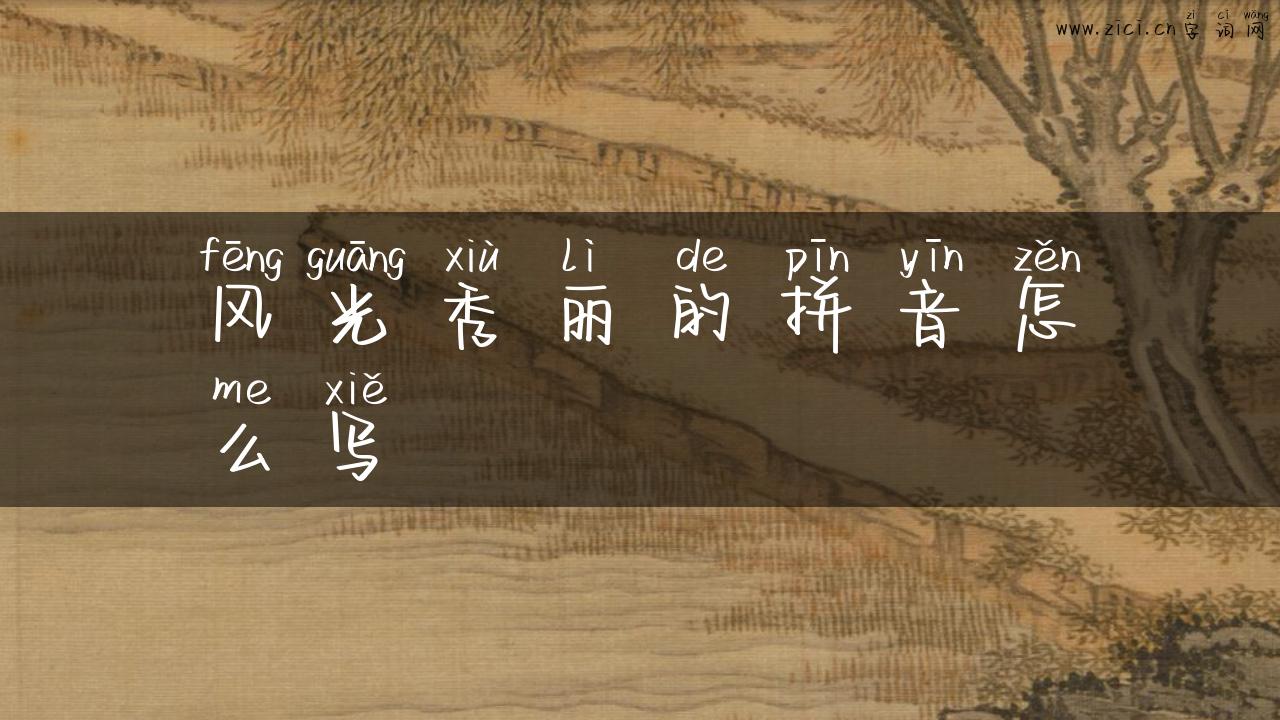 zì cí wǎng
www.zici.cn字词网
fēng guāng xiù lì de pīn yīn zěn
风光秀丽的拼音怎
me xiě
么写